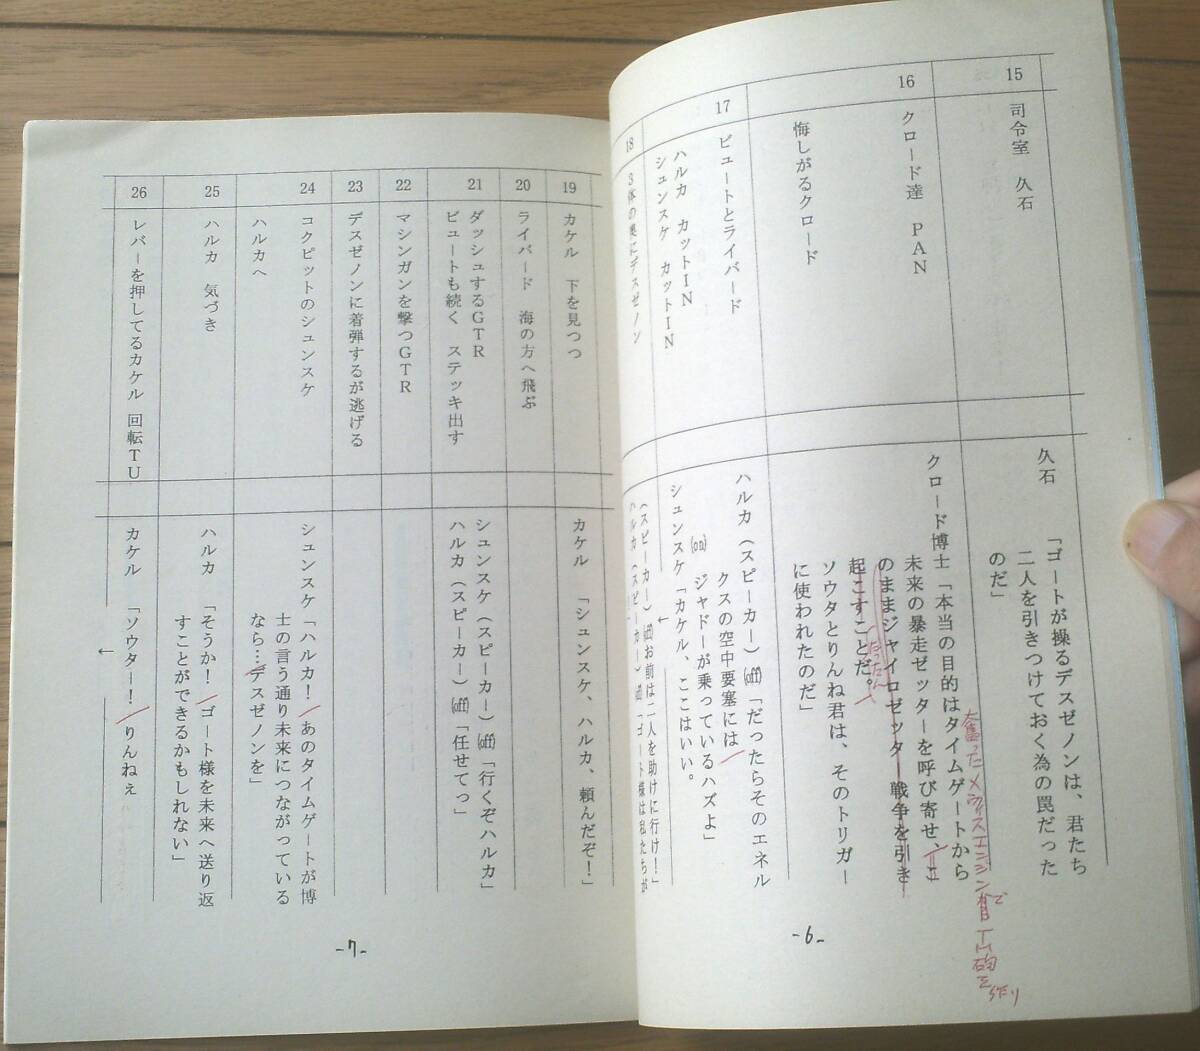 15
司令室　久石
久石　「ゴートが操るデスゼノンは、君たち
二人を引きつけておく為の罠だった
のだ」
16
クロード達　PAN
クロード博士「本当の目的はタイムゲートから
未来の暴走ゼッターを呼び寄せ、こ
のままジャイロゼッター戦争を引き
起こすことだ。
だったんだ
奪ったメウリスエンジン
で
TM砲を
作り
悔しがるクロード
ソウタとりんね君は、そのトリガー
に使われたのだ」
17
ビュートとライバード
ハルカ　カットIN
シュンスケ　カットIN
ハルカ（スピーカー）(off)「だったらそのエネル
クスの空中要塞には
(on)　ジャドーが乗っているハズよ」
シュンスケ「カケル、ここはいい。
←
18
3体の奥にデスゼノン
（スピーカー）(off)お前は二人を助けに行け！」
ハルカ（スピーカー）(off)「ゴート様は私たちが
-6-
19
カケル　下を見つつ
カケル　「シュンスケ、ハルカ、頼んだぞ！」
20
ライバード　海の方へ飛ぶ
21
ダッシュするGTR
ビュートも続く　ステッキ出す
シュンスケ（スピーカー）(off)「行くぞハルカ」
ハルカ（スピーカー）(off)「任せてっ」
22
マシンガンを撃つGTR
23
デスゼノンに着弾するが逃げる
24
コクピットのシュンスケ
ハルカへ
シュンスケ「ハルカ！あのタイムゲートが博
士の言う通り未来につながっている
なら…デスゼノンを」
25
ハルカ　気づき
ハルカ　「そうか！ゴート様を未来へ送り返
すことができるかもしれない」
26
レバーを押してるカケル　回転TU
カケル　「ソウター！りんねぇ
←
-7-